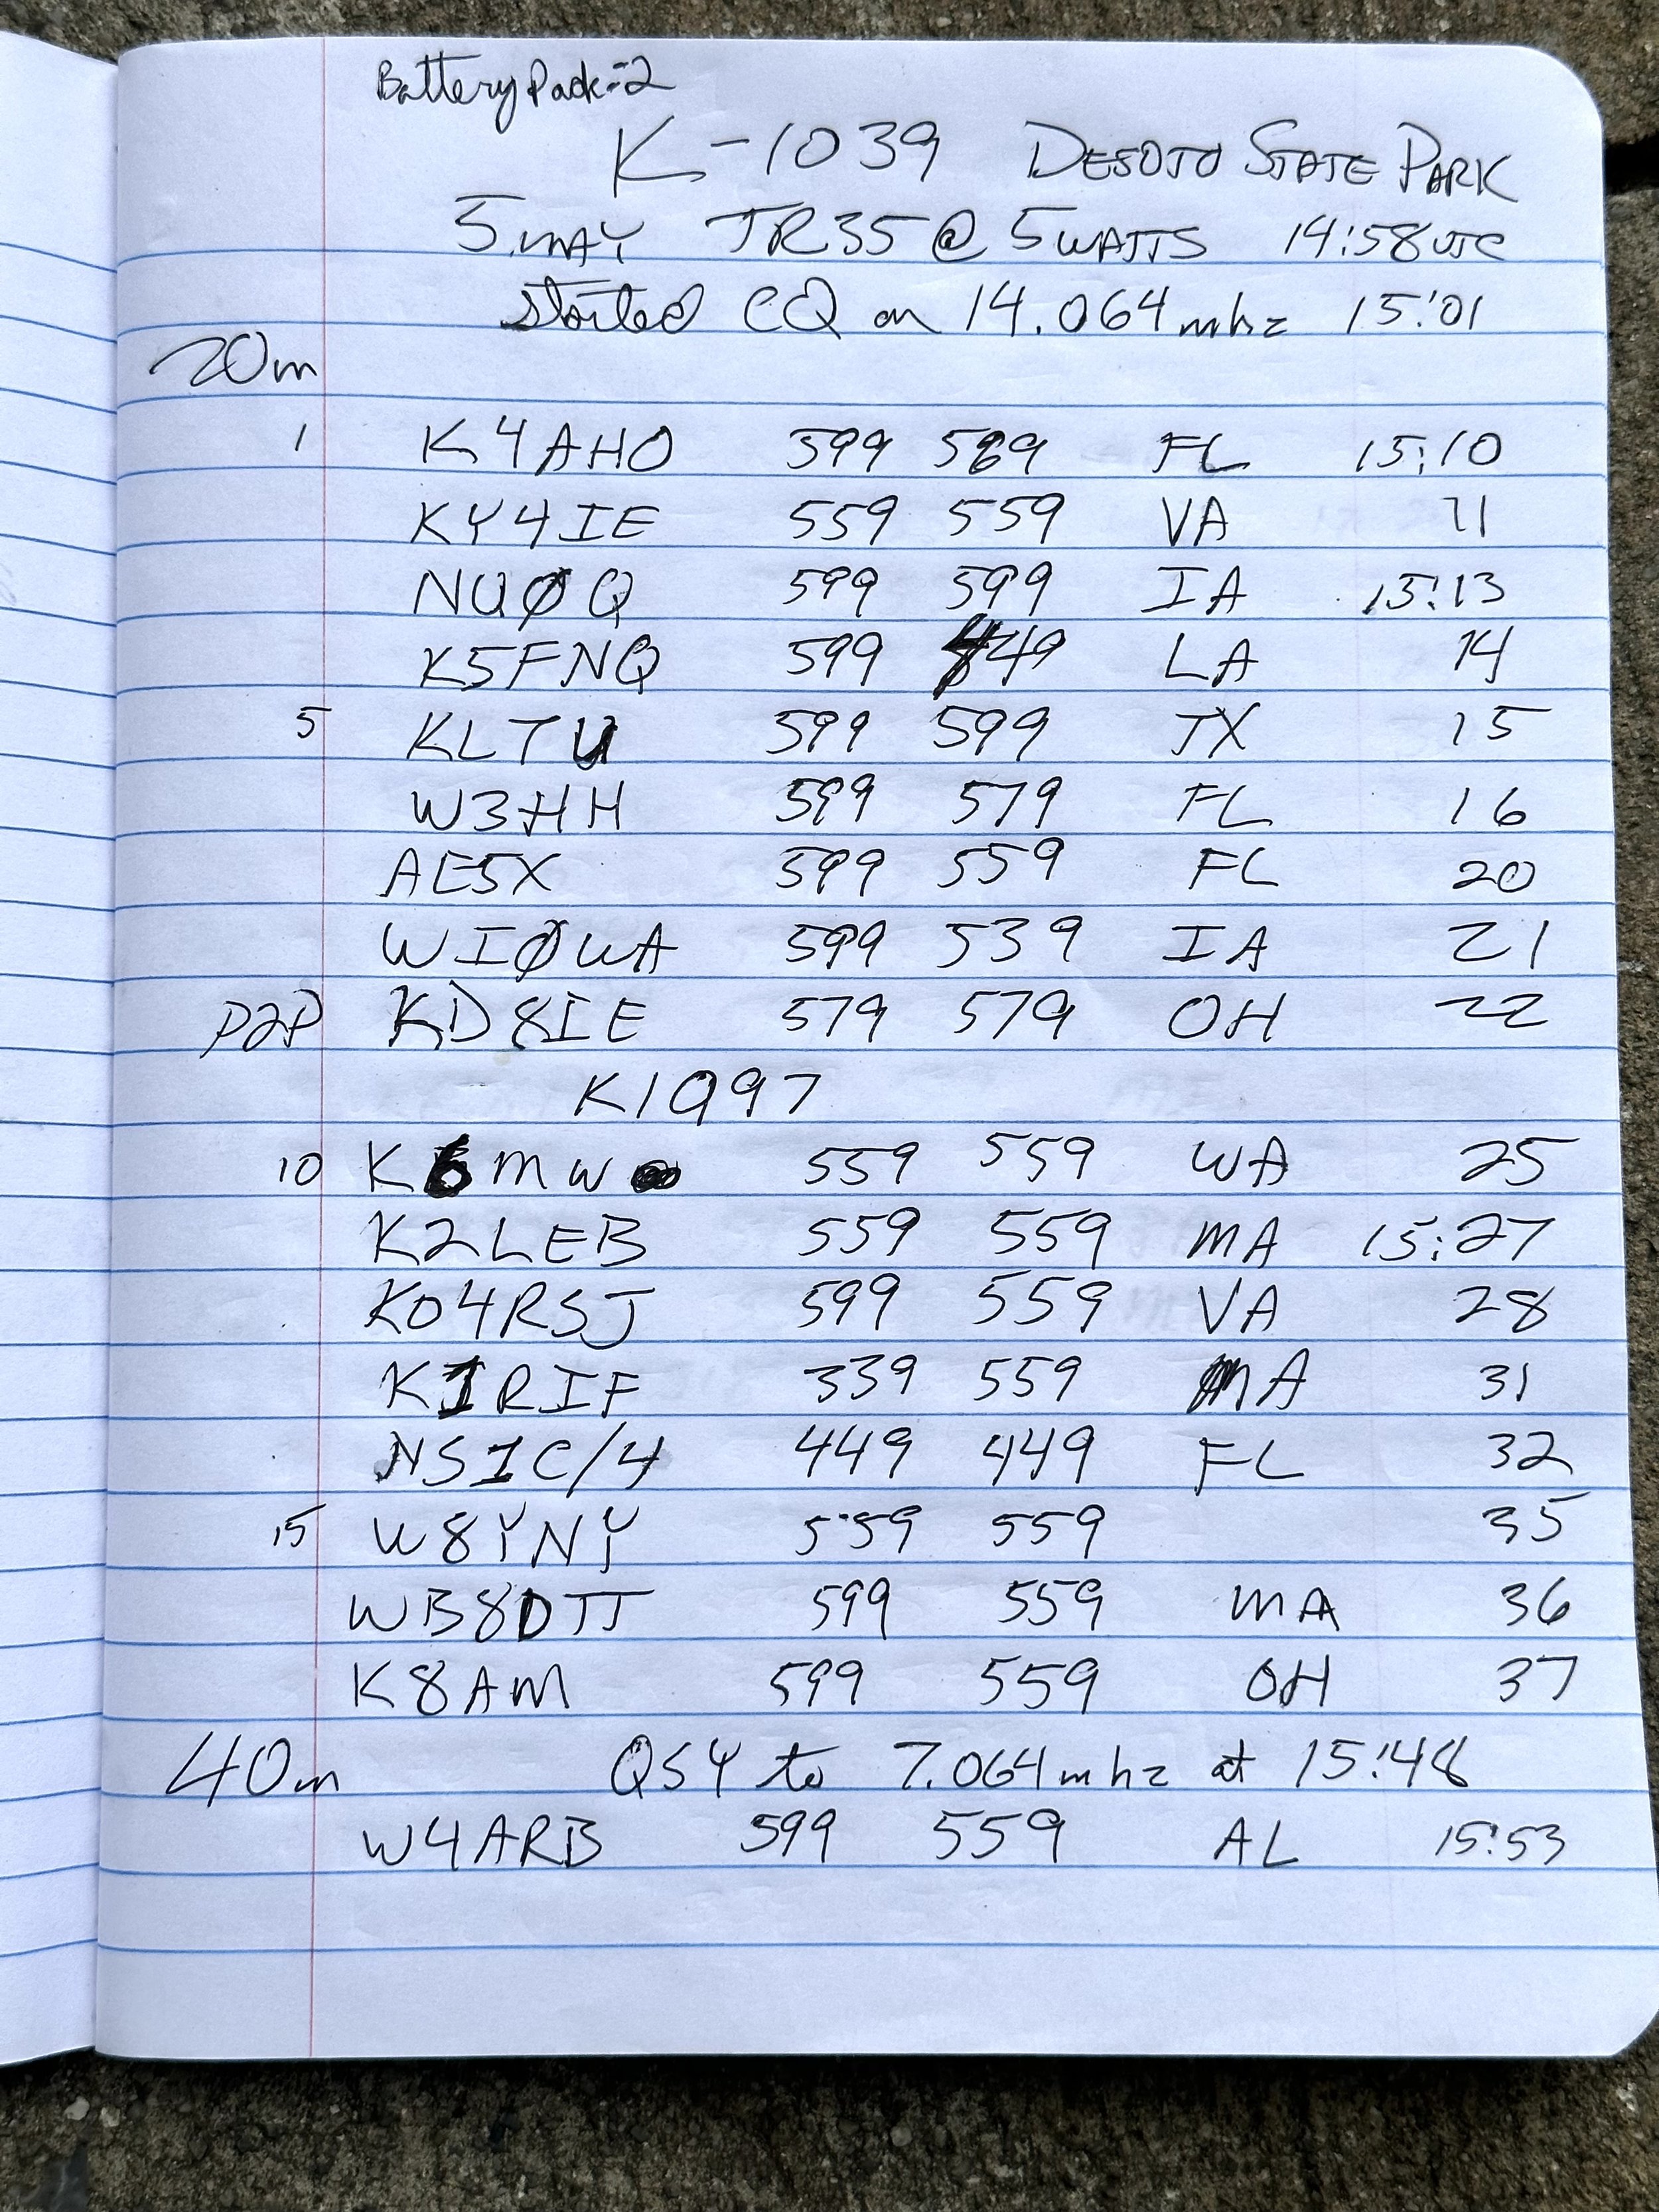 Battery Pack-2
K-1039 DESOTO STATE PARK
5 MAY TR35 @ 5 WATTS 14:58 UTC
started CQ on 14.064 mhz 15:01
20m
1 K4AHO 599 569 FL 15:10
KY4IE 559 559 VA 11
NUØQ 599 599 IA 15:13
K5FNQ 599 449 LA 14
5 KL7U 599 599 TX 15
W3HH 599 579 FL 16
AE5X 599 559 FL 20
WIØWA 599 539 IA 21
P2P KD8IE 579 579 OH 22
K1997
10 K6MW 559 559 WA 25
K2LEB 559 559 MA 15:27
KO4RSJ 599 559 VA 28
K1RIF 339 559 MA 31
NS1C/4 449 449 FL 32
15 W8YNY 559 559 35
WB8DTT 599 559 MA 36
K8AM 599 559 OH 37
40m QSY to 7.064 mhz at 15:48
W4ARB 599 559 AL 15:53